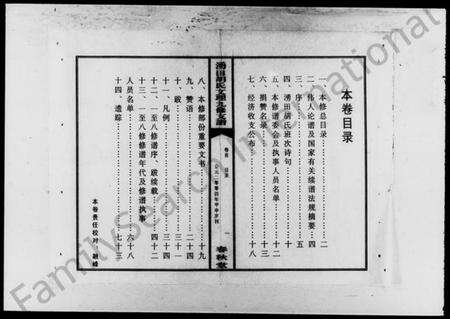 本卷目录
一 本修总目录 二
二 伟人论谱及国家有关续谱法规摘要 四
三 序 五
四 湧田胡氏班次诗句 十一
五 本修谱委会及执事人员名单 十二
六 捐赞名录 十三
七 经济收支公布 十八
湧田胡氏文瑾九修支谱
卷首 目录
一
春秋堂
八 本修部份重要文书 十九
九 赞语 二十四
十 跋 三十一
十一 凡例 三十四
十二 一至八修谱序、跋续载 四十二
十三 一至八修谱年代及修谱执事
人员名单 六十八
十四 遗踪 七十三
本卷责任校对
FamilySearch International